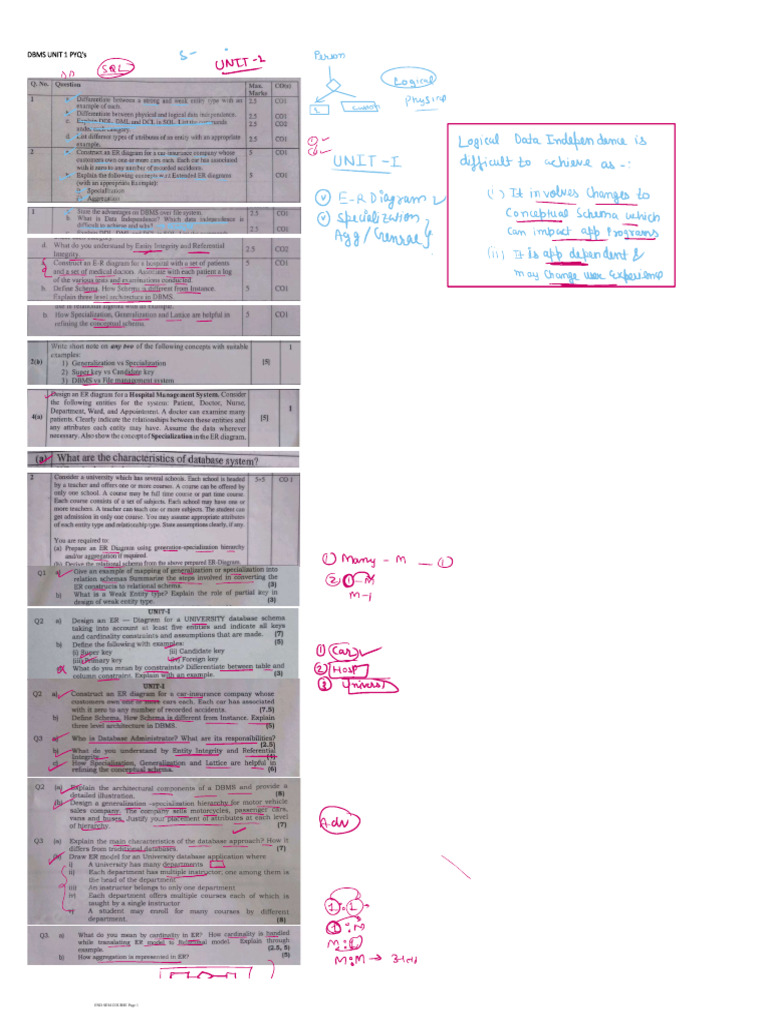 DBMS UNIT 1 PYQ's
SQL
UNIT-1
Person
Logical
Physical
Q. No. Question Max. Marks CO(s)
1 a. Differentiate between a strong and weak entity type with an 2.5 CO1
example of each.
b. Difference between physical and logical data independence. 2.5 CO1
c. Explain DDL, DML and DCL in SQL. List the commands 2.5 CO2
under each category.
d. List different types of attributes of an entity with an appropriate 2.5 CO1
example.
2 a. Construct an ER diagram for a car insurance company whose 5 CO1
customers own one or more cars each. Each car has associated
with it zero to any number of recorded accidents.
b. Explain the following concepts wrt Extended ER diagrams 5 CO1
(with an appropriate Example):
Specialization
Aggregation
UNIT-I
E-R Diagram
Specialization
Agg/Genral
Logical Data Independence is
difficult to achieve as -:
(i) It involves changes to
Conceptual Schema which
can impact app Programs
(ii) It is app dependent &
may change user Experience
1 a. State the advantages on DBMS over file system. 2.5 CO1
b. What is Data Independence? Which data independence is 2.5 CO1
difficult to achieve and why?
2.5 CO1
d. What do you understand by Entity Integrity and Referential 2.5 CO2
Integrity.
Construct an E-R diagram for a hospital with a set of patients 5 CO1
and a set of medical doctors. Associate with each patient a log
of the various tests and examinations conducted.
b Define Schema. How Schema is different from Instance. 5 CO1
Explain three level architecture in DBMS.
b. How Specialization, Generalization and Lattice are helpful in 5 CO1
refining the conceptual schema.
2(b) Write short note on any two of the following concepts with suitable [5] 1
examples:
1) Generalization vs Specialization
2) Super key vs Candidate key
3) DBMS vs File management system
4(a) Design an ER diagram for a Hospital Management System. Consider [5] 1
the following entities for the system: Patient, Doctor, Nurse,
Department, Ward, and Appointment. A doctor can examine many
patients. Clearly indicate the relationships between these entities and
any attributes each entity may have. Assume the data wherever
necessary. Also show the concept of Specialization in the ER diagram.
(a) What are the characteristics of database system?
2 Consider a university which has several schools. Each school is headed 5+5 CO 1
by a teacher and offers one or more courses. A course can be offered by
only one school. A course may be full time course or part time course.
Each course consists of a set of subjects. Each school may have one or
more teachers. A teacher can teach one or more subjects. The student can
get admission in only one course. You may assume appropriate attributes
of each entity type and relationship type. State assumptions clearly, if any.
You are required to:
(a) Prepare an ER Diagram using generation-specialization hierarchy
and/or aggregation if required.
(b) Derive the relational schema from the above prepared ER-Diagram.
Q1 a) Give an example of mapping of generalization or specialization into
relation schemas Summarize the steps involved in converting the
ER constructs to relational schema. (3)
b) What is a Weak Entity type? Explain the role of partial key in
design of weak entity type. (3)
① Many - M — ①
② 1 - M
M-1
UNIT-I
Q2 a) Design an ER — Diagram for a UNIVERSITY database schema
taking into account at least five entities and indicate all keys
and cardinality constraints and assumptions that are made. (7)
b) Define the following with examples: (5)
(i) Super key (ii) Candidate key
(iii) Primary key (iv) Foreign key
What do you mean by constraints? Differentiate between table and
column constraint. Explain with an example. (3)
① Car
② Hosp
③ Univers
UNIT-I
Q2 a) Construct an ER diagram for a car-insurance company whose
customers own one or more cars each. Each car has associated
with it zero to any number of recorded accidents. (7.5)
b) Define Schema. How Schema is different from Instance. Explain
three level architecture in DBMS. (5)
Q3 a) Who is Database Administrator? What are its responsibilities?
(2.5)
b) What do you understand by Entity Integrity and Referential
Integrity. (4)
c) How Specialization, Generalization and Lattice are helpful in
refining the conceptual schema. (6)
Q2 (a) Explain the architectural components of a DBMS and provide a
detailed illustration. (8)
(b) Design a generalization -specialization hierarchy for motor vehicle
sales company. The company sells motorcycles, passenger cars,
vans and buses. Justify your placement of attributes at each level
of hierarchy. (7)
Q3 (a) Explain the main characteristics of the database approach? How it
differs from traditional databases. (7)
(b) Draw ER model for an University database application where
i) A university has many departments
ii) Each department has multiple instructor; one among them is
the head of the department
iii) An instructor belongs to only one department
iv) Each department offers multiple courses each of which is
taught by a single instructor
v) A student may enroll for many courses by different
department. (8)
Adv
Q3. a) What do you mean by cardinality in ER? How cardinality is handled
while translating ER model to Relational model. Explain through
example. (2.5, 5)
b) How aggregation is represented in ER? (5)
1:1
1:M
M:1
M:M →